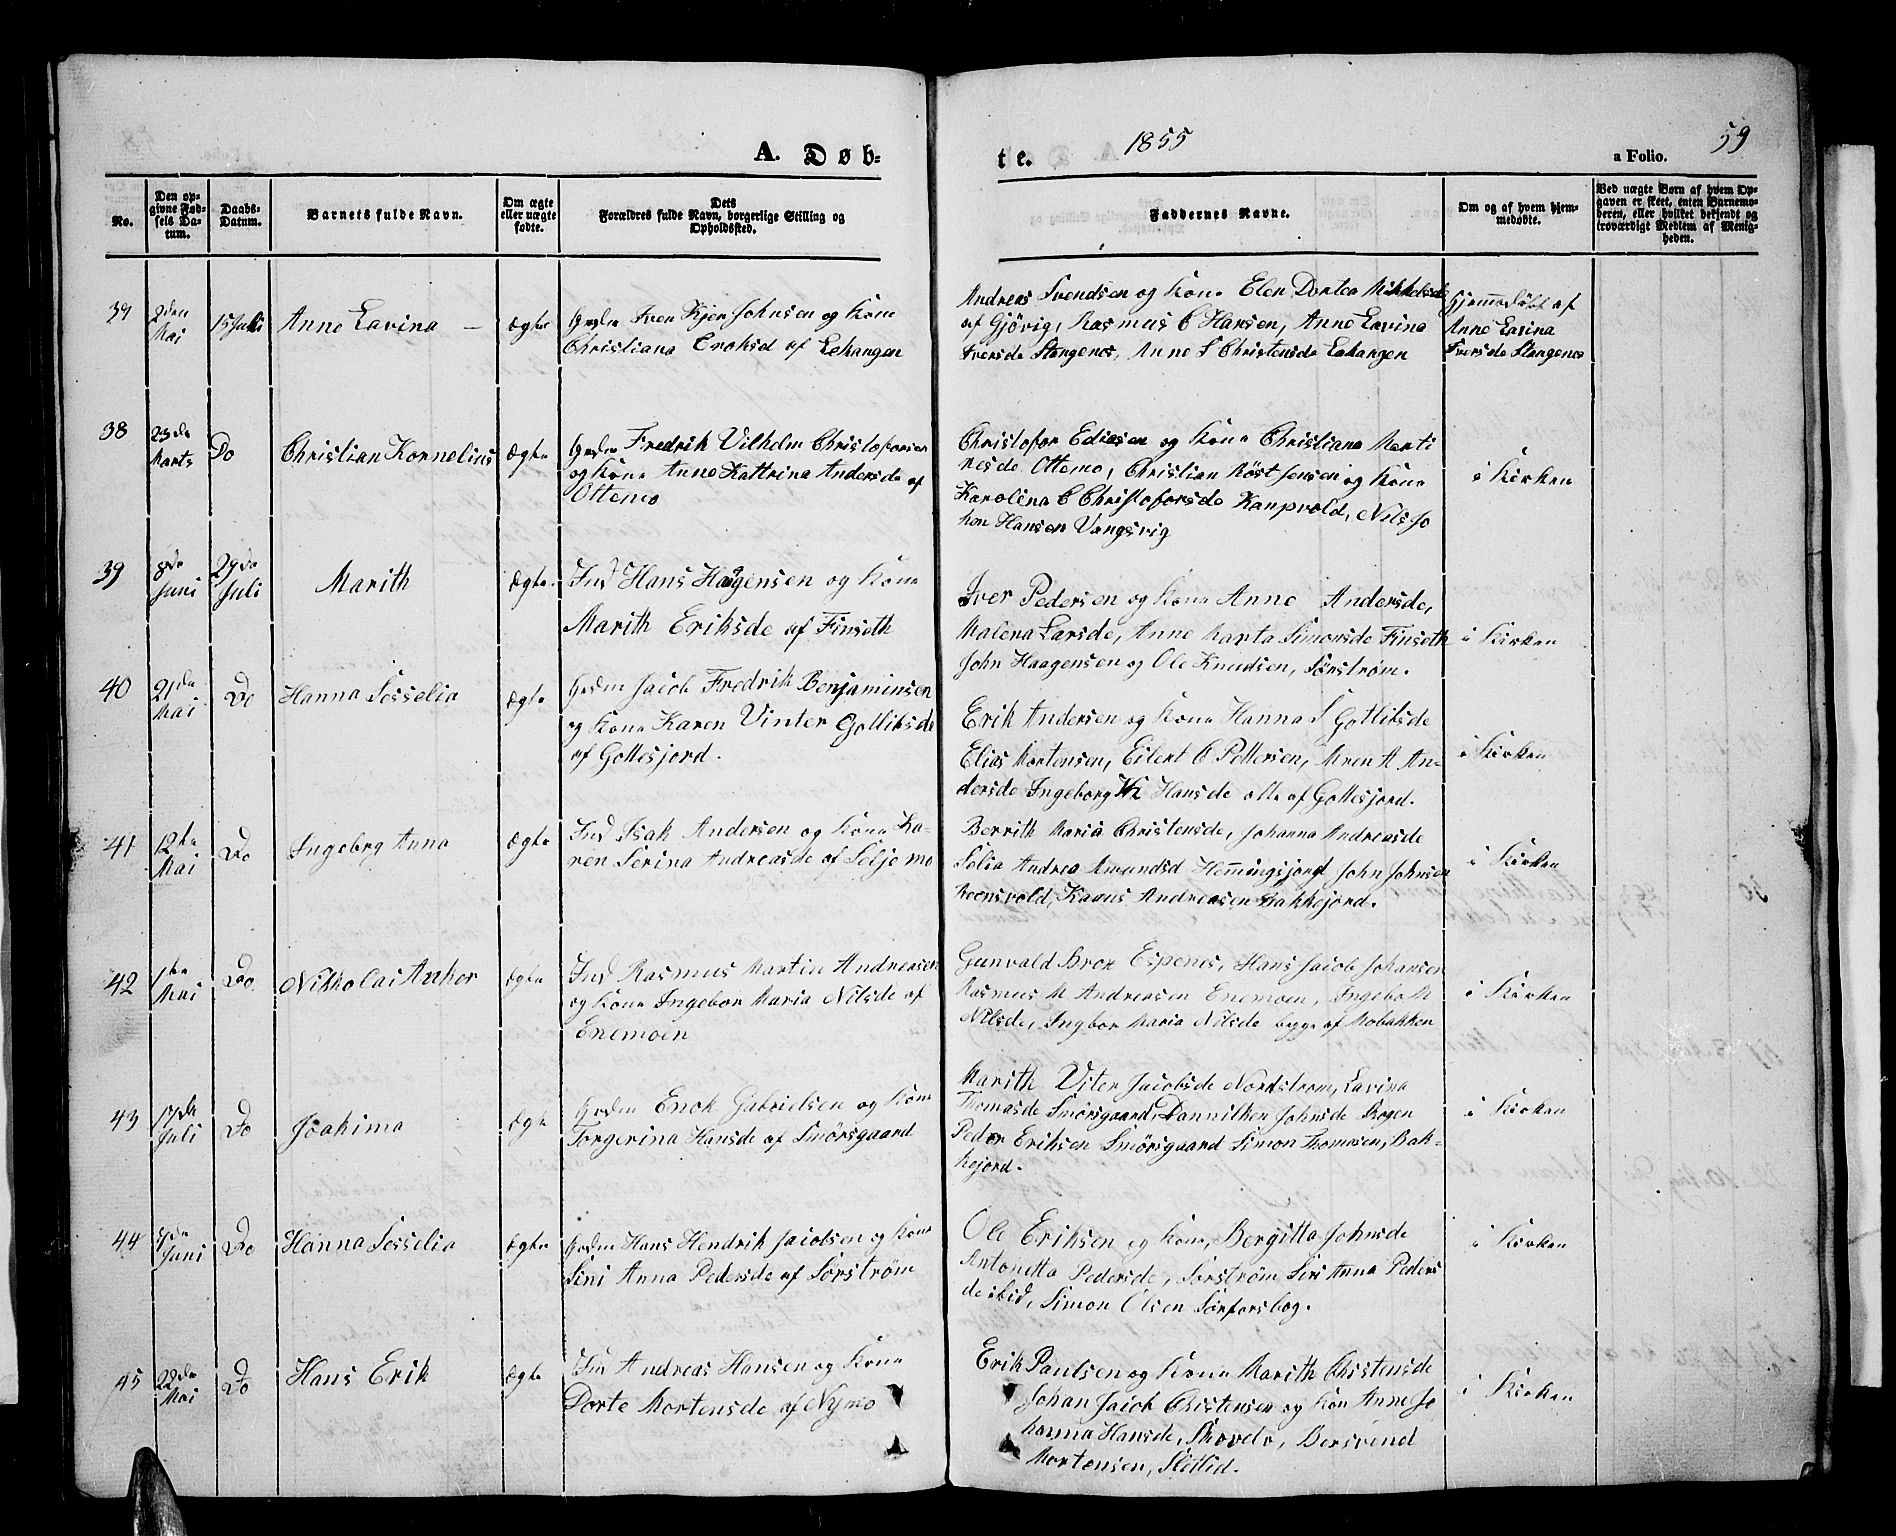 A. Døb-
te.
1855
a Folio.
59
No.
Den op-
givne Fød-
sels Da-
tum.
Daabs-
Datum.
Barnets fulde Navn.
Om ægte
eller uægte
fødte.
Dets
Forældres fulde Navn, borgerlige Stilling og
Opholdssted.
Faddernes Navne.
Om og af hvem hjem-
medøbte.
Ved uægte Børn af hvem Op-
gaven er skeet, enten Barnemo-
deren, eller hvilket bekjendt og
troværdigt Medlem af Menig-
heden.
2den
Mai
15 Juli
Anne Lavina
Ægte
Johnsen og Kone
Christiana af Lekangen
Andreas Svendsen og Kone Elen Dortea
af Gjövig, Rasmus C Hansen, Anne Lavina
Iversde Stangenes, Anne S Christensde Lekangen
Hjemmedöbt af
Anne Lavina
Iversde Stangenes
38
23de
Marts
Do
Christian Kornelius
Ægte
Fredrik Vilhelm Christofersen
og Kone Anne Kattrina Andersde af
Ottemo
Christofer Ediasen og Kone Christiana Marti
nesde Ottemo, Christian Röst Jensen og Kone
Karolina C Christofersde Kampvold, Nils Jo
han Hansen Vangsvig
i Kirken
39
8de
Juni
29de
Juli
Marith
Ægte
Ind Hans Hagensen og Kone
Marith Eriksde af Finseth
Iver Pedersen og Kone Anne Andersde,
Malena Larsde, Anne Marta Simonsde Finseth
John Haagensen og Ole Knudsen, Sørstrøm.
i Kirken
40
21de
Mai
Do
Hanna Sesselia
Ægte
Jacob Fredrik Benjaminsen
og Kone Karen Vinter Gotlibsde
af Gottesjord.
Erik Andersen og Kone Hanna S Gotlibsde
Elias Mortensen, Eilert C Pettersen, Maren A An-
dersde Ingeborg Hansde alle af Gottesjord.
i Kirken
41
12te
Mai
Do
Ingebrg Anna
Ægte
Ind Isak Andersen og Kone Ka-
ren Serina Andreasde af Seljemo
Berrith Maria Christensde, Johanna Andreasde
Selia Andrea Amundsd Hemmingsjord John Johnsen
Andreasen Bakkejord.
i Kirken
42
1te
Mai
Do
Nikkolai Anker
Ægte
Ind Rasmus Martin Andreasen
og Kone Ingebor Maria Nilsde af
Enemoen
Gunvald Brox Espenes, Hans Jacob Johansen
Rasmus M Andreasen Enemoen, Ingebo M
Nilsde, Ingbor Maria Nilsde begge af Mobakken
i Kirken
43
17de
Juli
Do
Joakima
Ægte
Enok Gabrielsen og Kone
Torgerina Hansde af Smörsgaard
Marith Viter Jacobsde Nordstrom, Lavina
Thomasde Smörsgaard, Johnsde
Peder Eriksen Smörsgaard Simon Thomasen, Bak-
kejord.
i Kirken
44
7de
Juni
Do
Hanna Sesselia
Ægte
Hans Hendrik Jacobsen og Kone
Sini Anna Pedersde af Sørstrøm
Ole Eriksen og Kone, Bergitta Johnsde
Antonetta Pedersde, Sorstrøm Anna Peders
de ibid, Simon Olsen Sørforsbog.
i Kirken
45
22de
Mai
Do
Hans Erik
Ægte
Ind Andreas Hansen og Kone
Dorte Mortensde af Nymo
Erik Paulsen og Kone Marith Christensde
Johan Jacob Christensen og Kone Anne Jo
hanna Hansde, Bersvend
Mortensen, Slettlid.
i Kirken